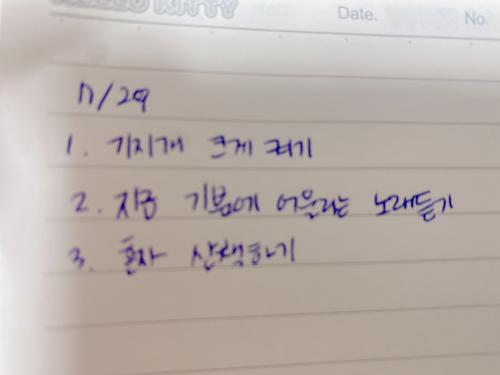 HELLO KITTY
Date. No.
11/29
1. 기지개 크게 켜기
2. 지금 기분에 어울리는 노래듣기
3. 혼자 산책하기